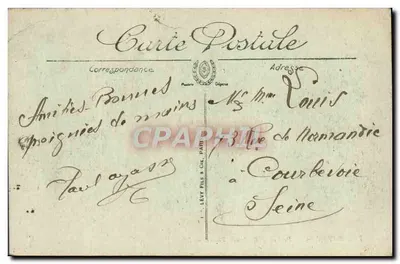 Carte Postale
Correspondance
Adresse
Amitiés Bonnes
poignées de mains
Mr Mme Louis
73 Rue de Normandie
à Courbevoie
Seine
CPAPHIL
LEVY FILS & Cie, PARIS